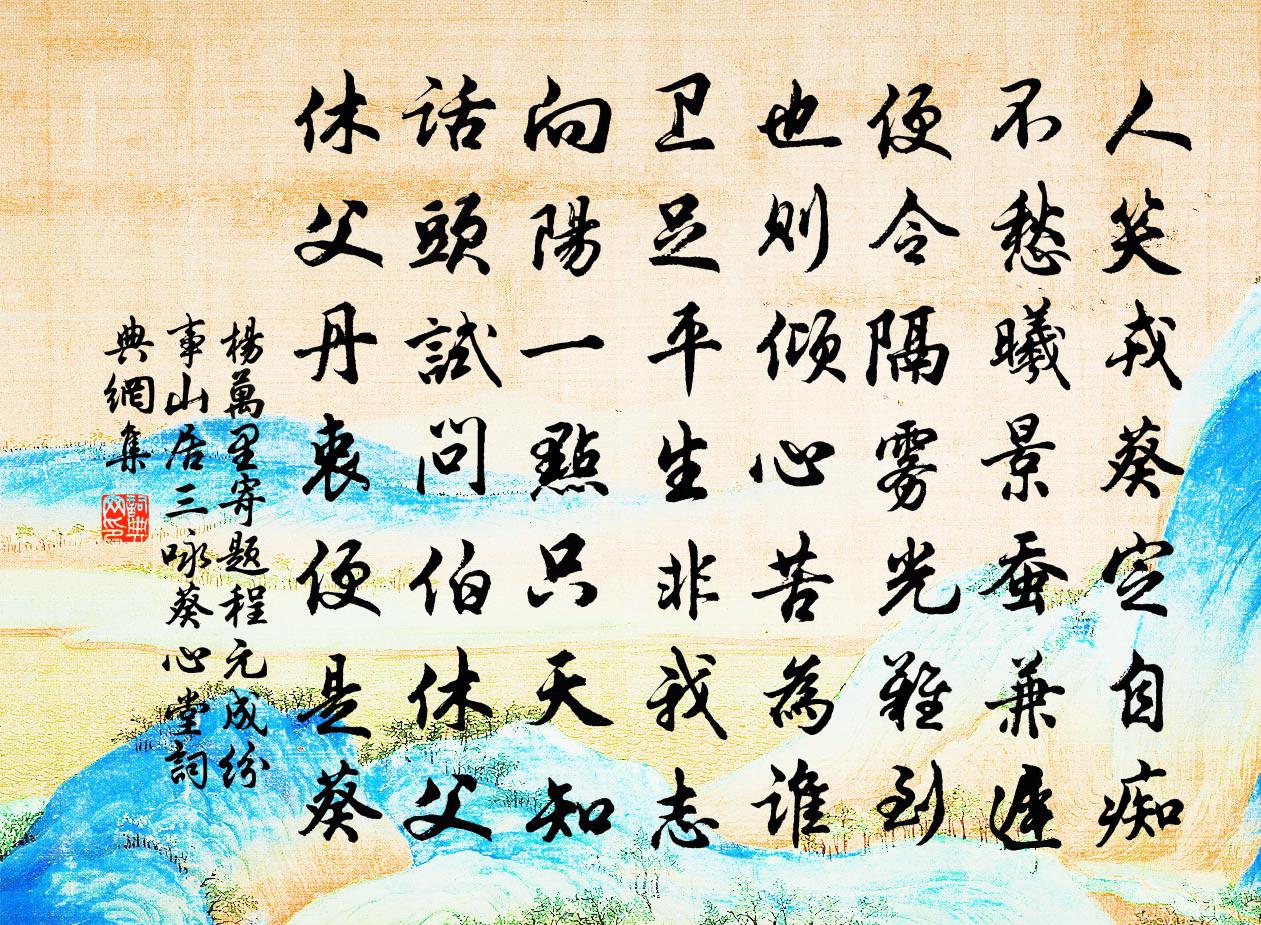 人笑戎葵定自痴
不愁曦景蚤兼遲
便令隔雾光難到
也则傾心苦為谁
卫足平生非我志
向陽一點只天知
話頭試問伯休父
休父丹衷便是葵
楊萬里寄題程元成給
事山居三咏葵心堂詞
典網集
詞典网印